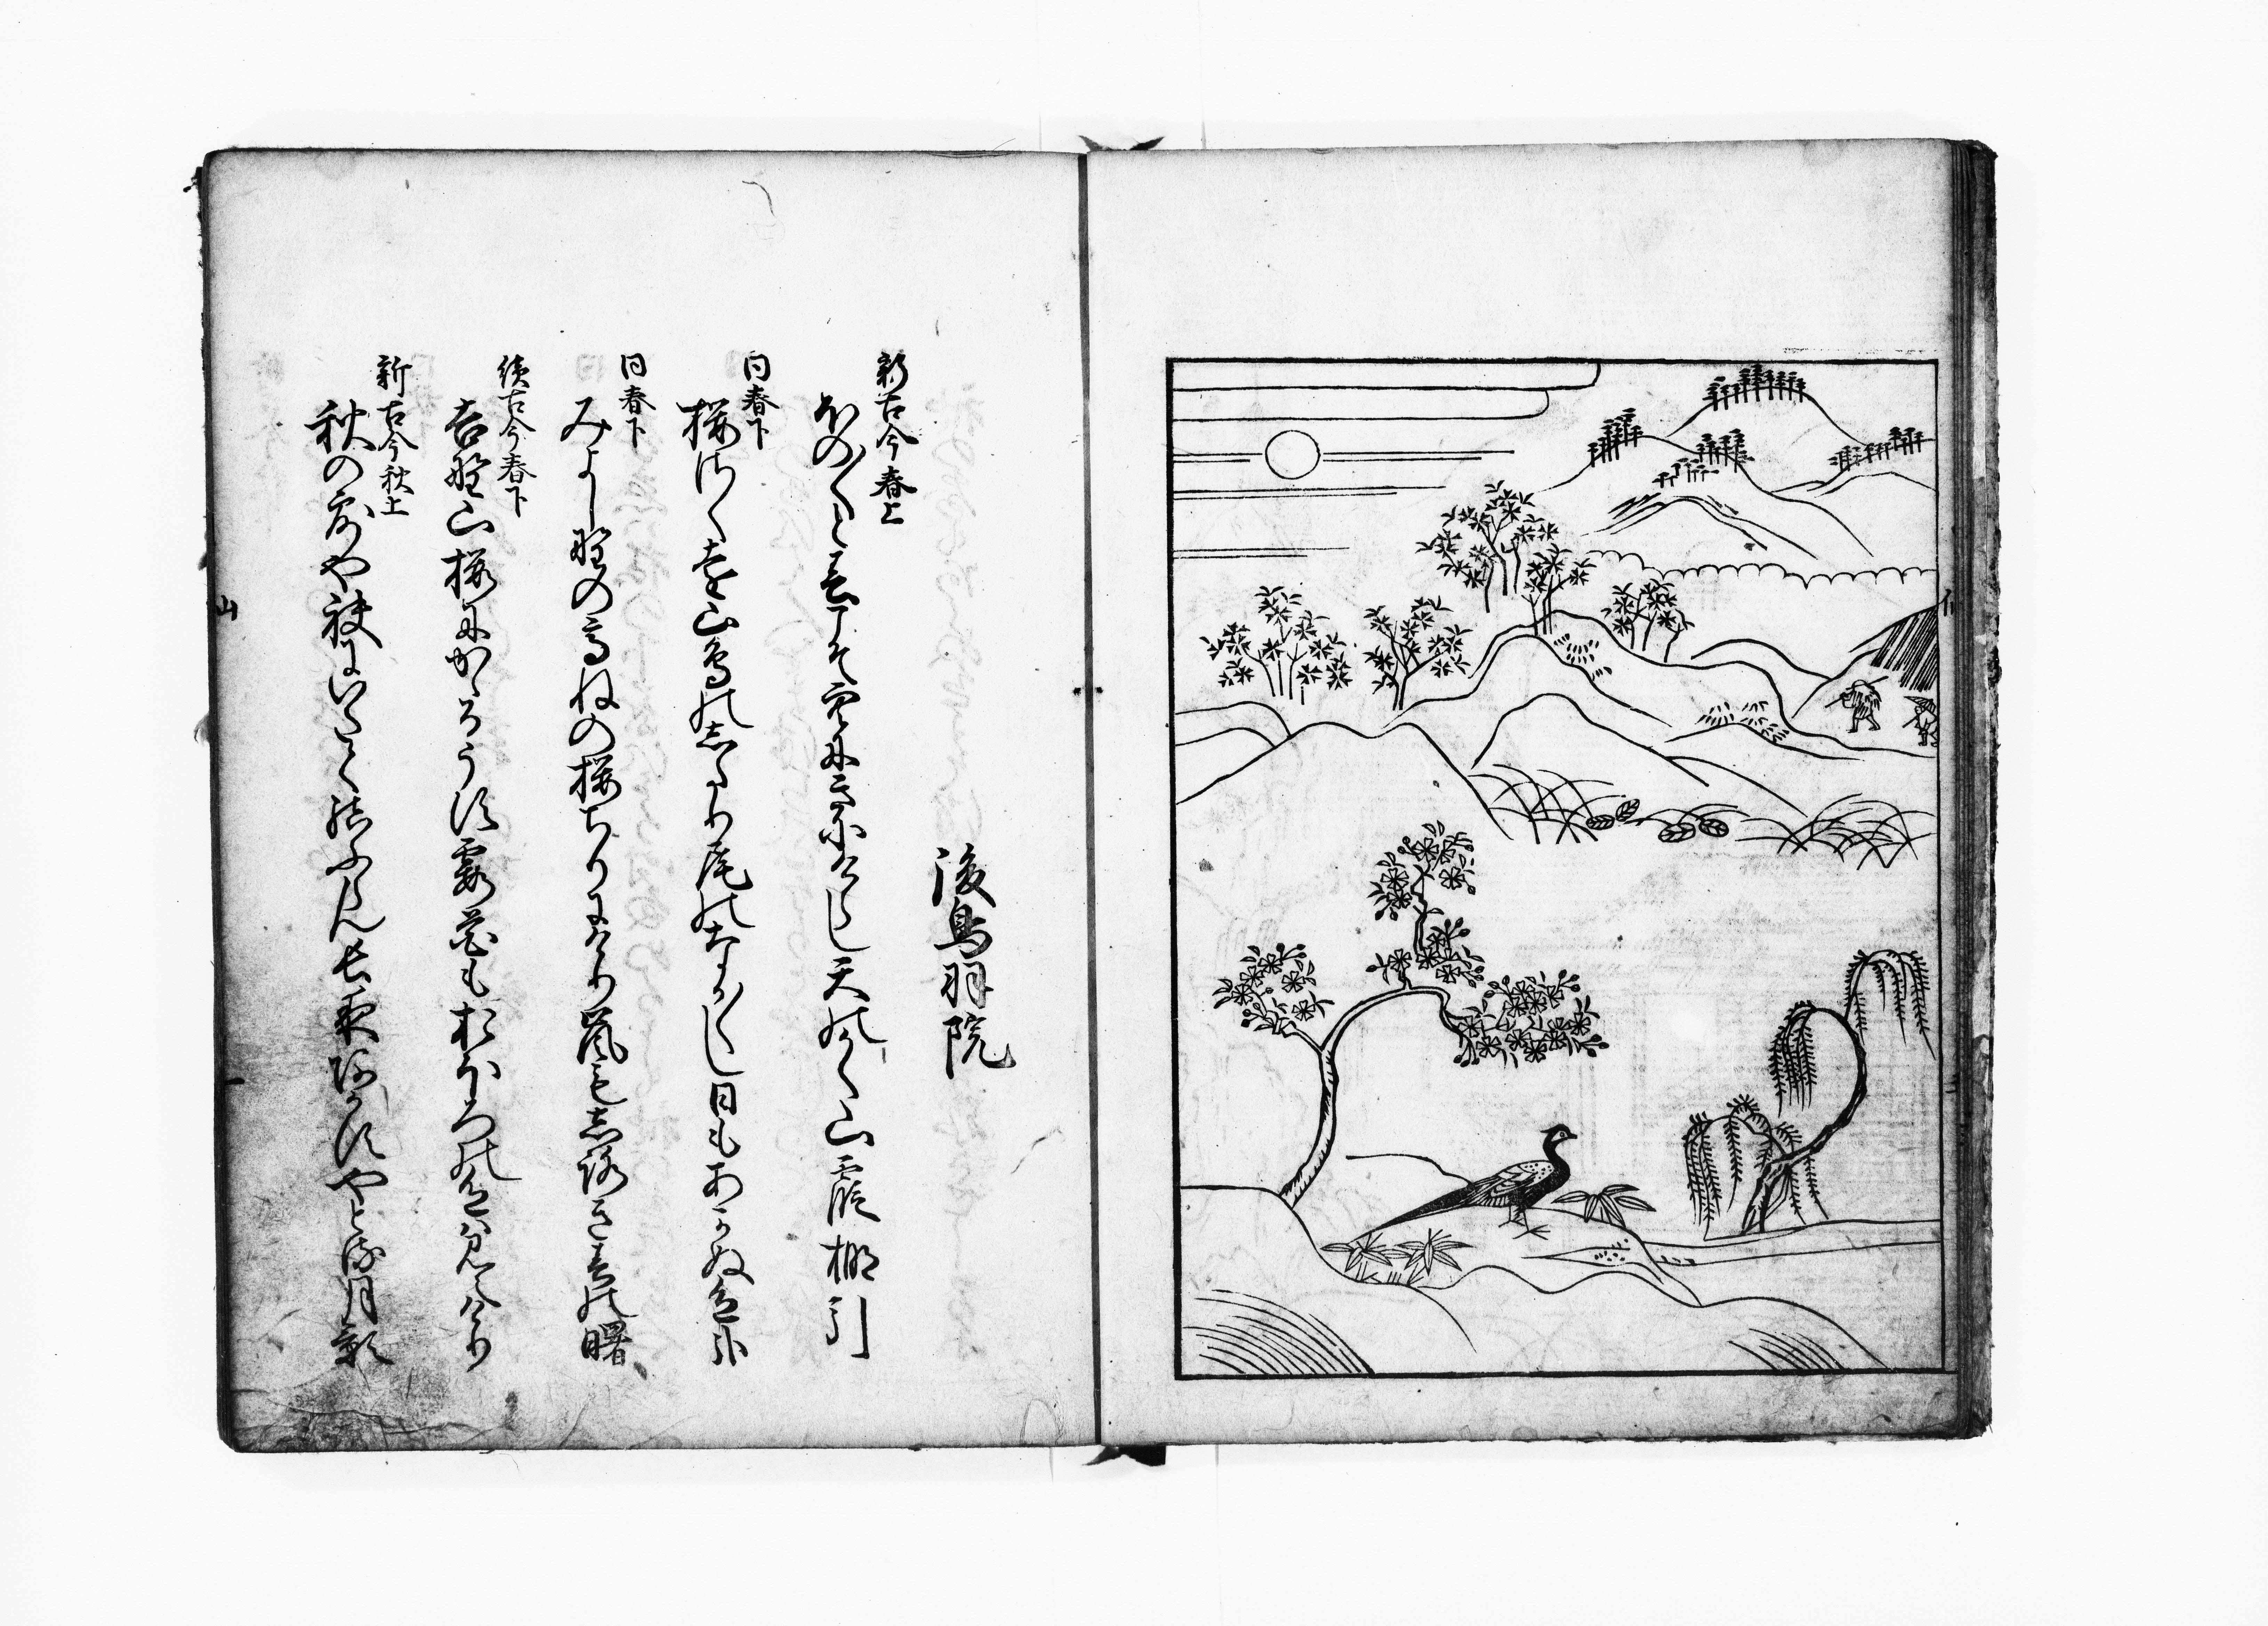 後鳥羽院
新古今春上
ほの〱と春こそ空にきにけらし天のかく山霞棚引
同春下
桜さく遠山鳥のしたり尾のなか〱し日もあかぬ色かな
同春下
みよし野の高ねの桜ちりにけり嵐も志ろき春の曙
続古今春下
吉野山桜にかゝるうす霞花もおほろの色は見えけり
新古今秋上
秋の露や袂にいたく結ふらん長き夜あかすやとる月影
山